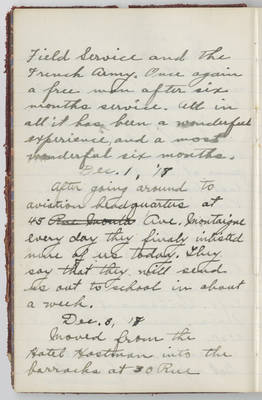 Field Service and the
French Army. Once again
a free man after six
months service. All in
all it has been a wonderful
experience, and a most
wonderful six months.
Dec. 1, '17
After going around to
aviation headquarters at
45 Ave. Montaigne
every day they finaly inlisted
nine of us today. They
say that they will send
us out to school in about
a week.
Dec. 3, 17
Moved from the
Hotel
into the
barracks at 30 Rue